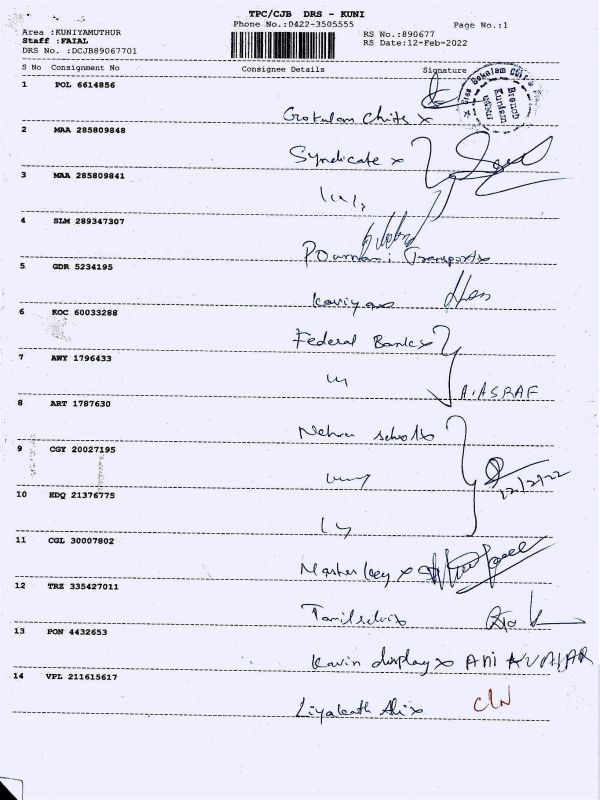 TPC/CJB DRS - KUNI
Phone No.:0422-3505555 Page No.:1
Area :KUNIYAMUTHUR RS No.:890677
Staff :FAIAL RS Date:12-Feb-2022
DRS No. :DCJB89067701
S No Consignment No Consignee Details Signature
1 POL 6614856
Gokulam Chits x
2 MAA 285809848
Syndicate x
3 MAA 285809841
4 SLM 289347307
Transports
5 GDR 5234195
6 KOC 60033288
Federal Bank x
7 AWY 1796433
A.ASRAF
8 ART 1787630
Nehru
9 CGY 20027195
12/2/22
10 EDQ 21376775
11 CGL 30007802
Master key x
12 TRZ 335427011
Tamilselvi x
13 PON 4432653
Kavin display x ANI KUMAR
14 VPL 211615617
Liyakath Ali x